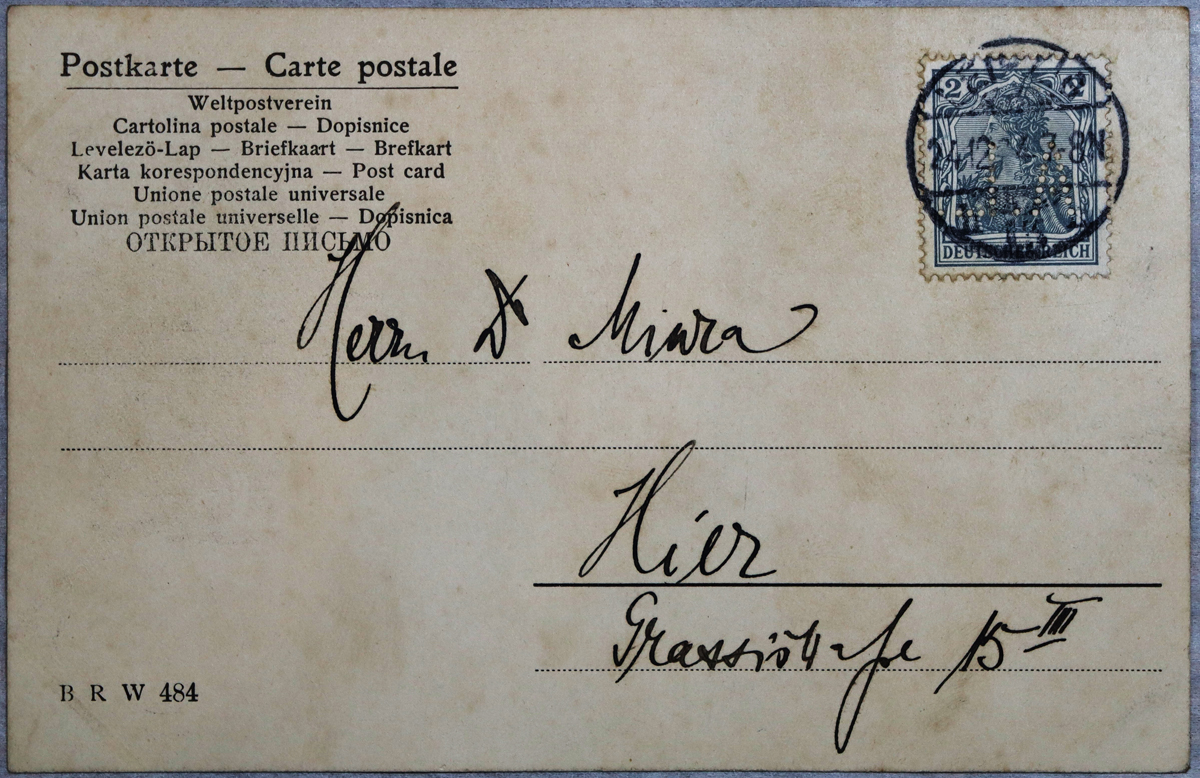 Postkarte — Carte postale
Weltpostverein
Cartolina postale — Dopisnice
Levelező-Lap — Briefkaart — Brefkart
Karta korespondencyjna — Post card
Unione postale universale
Union postale universelle — Dopisnica
ОТКРЫТОЕ ПИСЬМО
2 2
24.12 7-8N
DEUTSCHES REICH
Herrn Dr Miura
Hier
Grassistraße 15 III
B R W 484